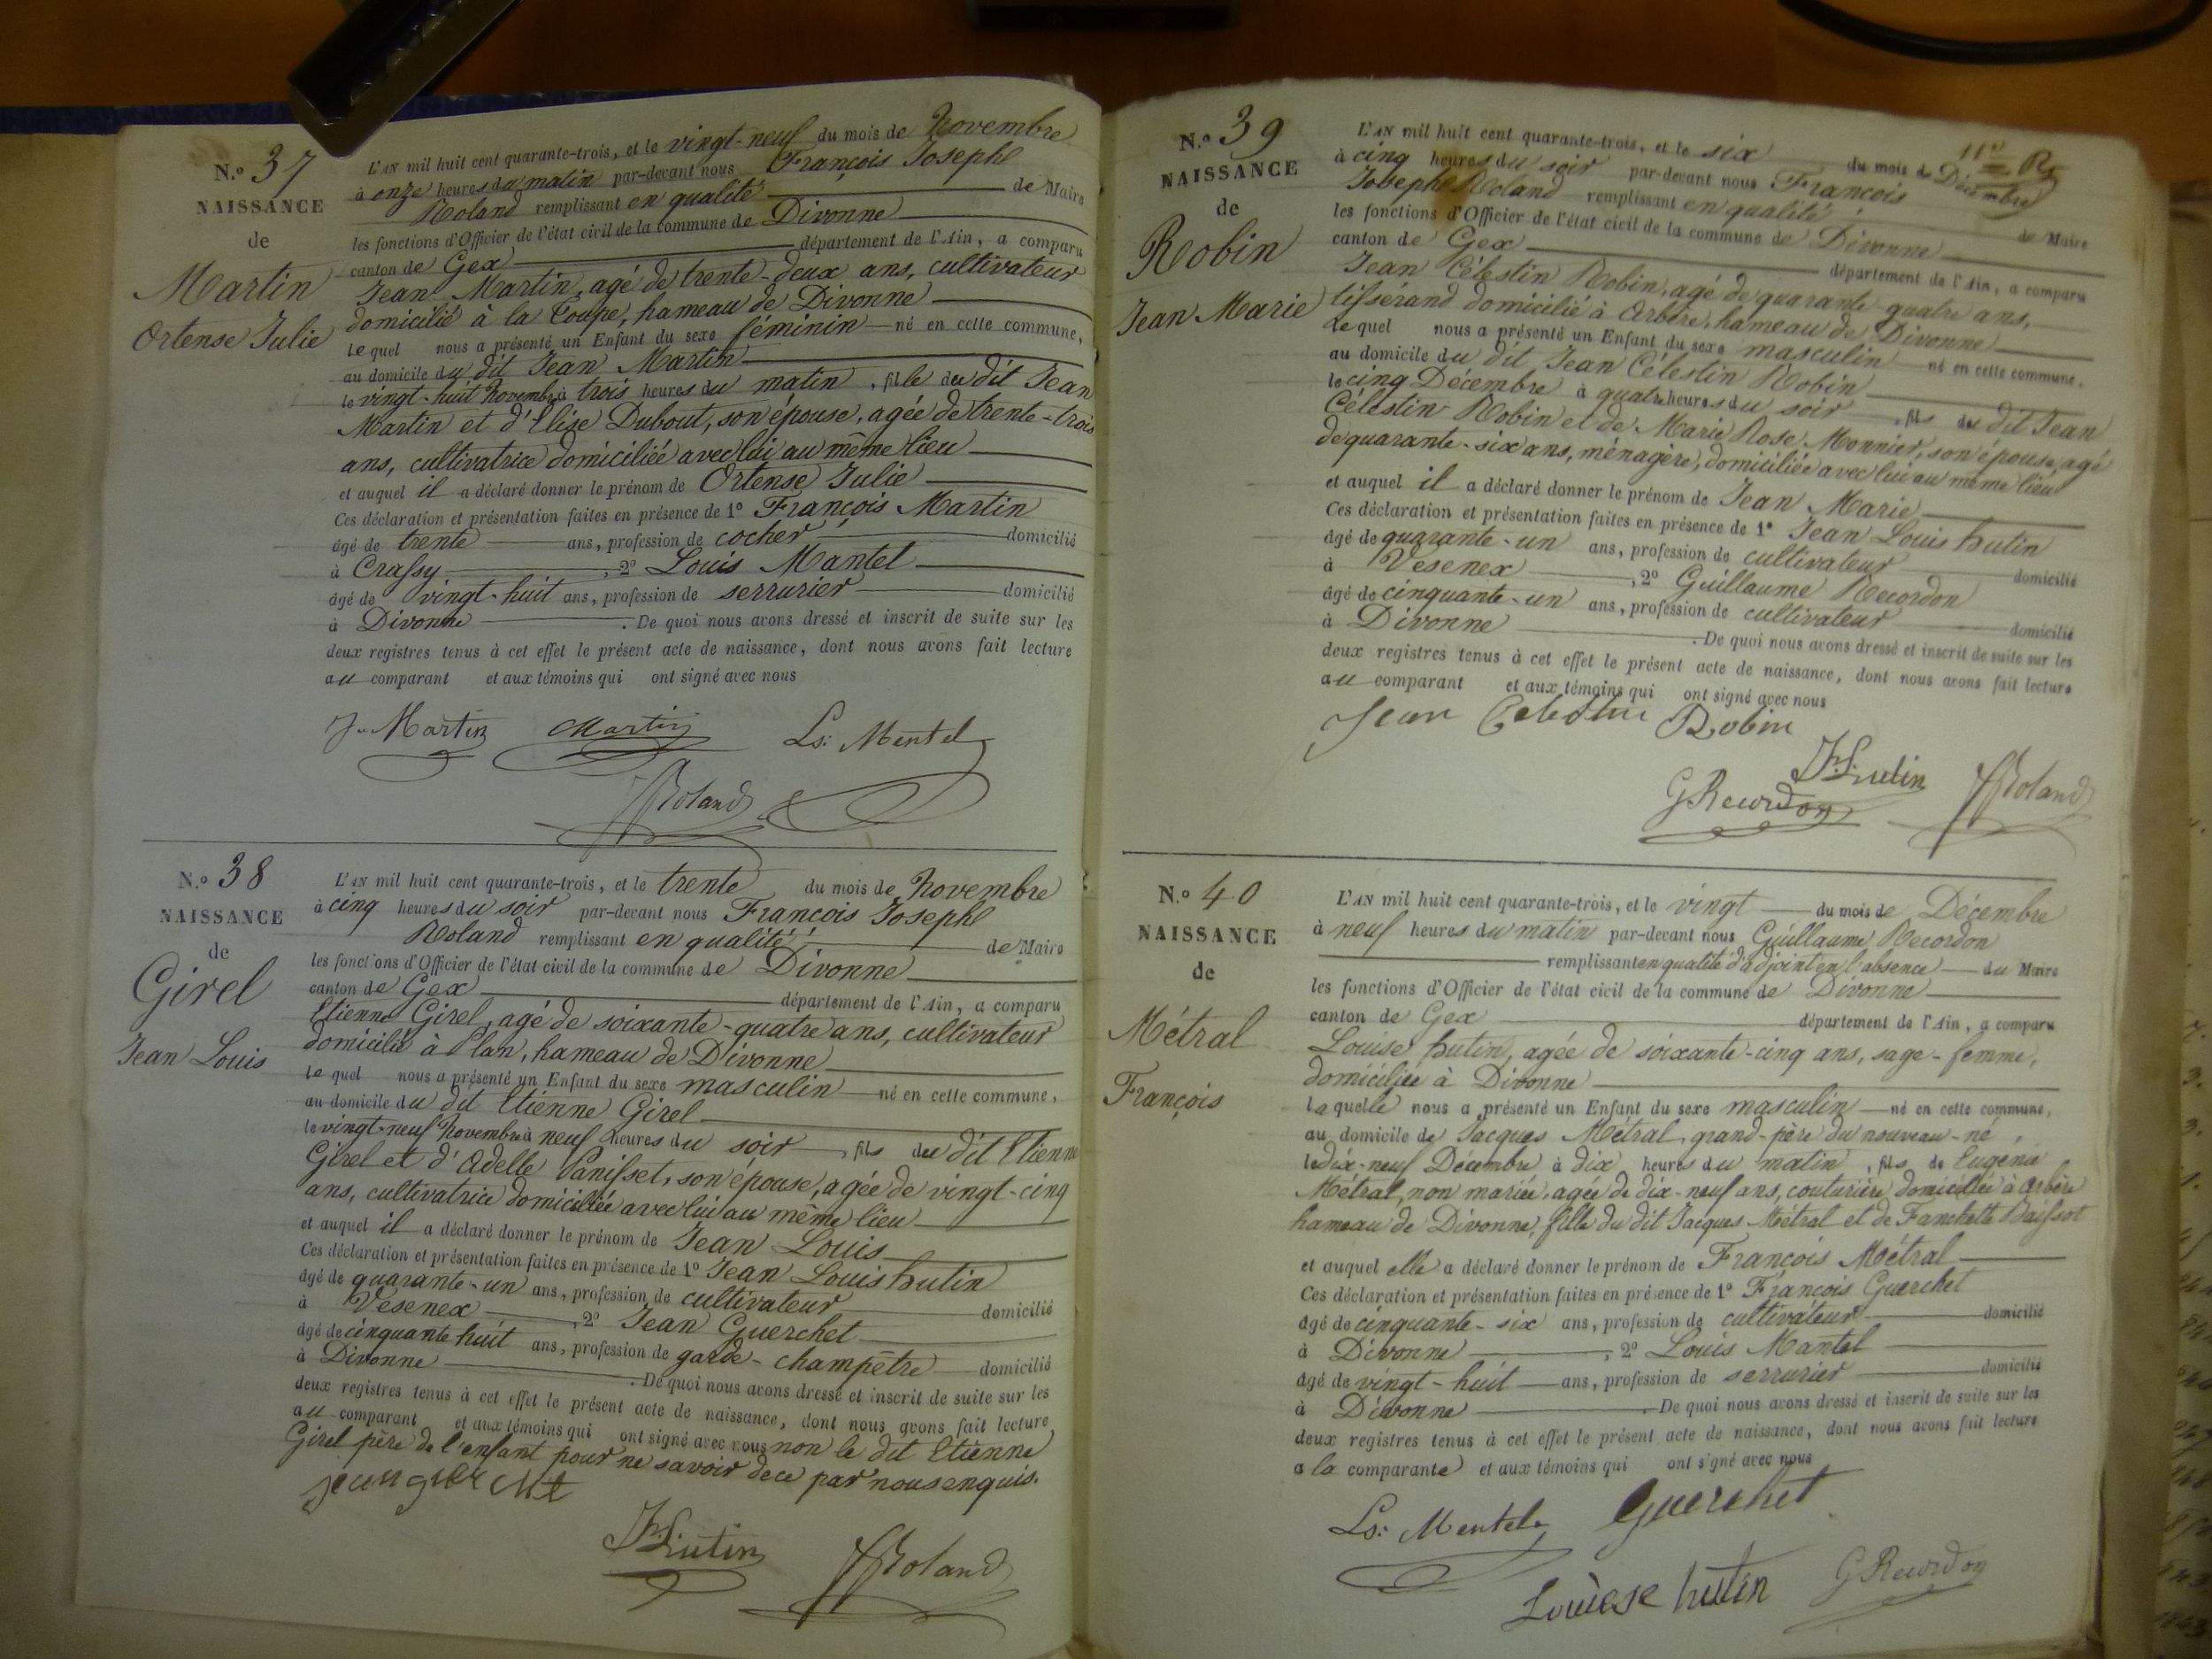 N.o 37
NAISSANCE
de
Martin
Ortense Julie
L'AN mil huit cent quarante-trois, et le vingt-neuf du mois de Novembre
à onze heures du matin par-devant nous François Joseph
Roland remplissant en qualité de Maire
les fonctions d'Officier de l'état civil de la commune de Divonne
canton de Gex département de l'Ain, a comparu
Jean Martin, agé de trente-deux ans, cultivateur
domicilié à la Coupe, hameau de Divonne
le quel nous a présenté un Enfant du sexe féminin né en cette commune,
au domicile du dit Jean Martin
le vingt-huit Novembre à trois heures du matin, fille du dit Jean
Martin et d'Elise Dubout, son épouse, agée de trente-trois
ans, cultivatrice domiciliée avec lui au même lieu
et auquel il a déclaré donner le prénom de Ortense Julie
Ces déclaration et présentation faites en présence de 1o François Martin
âgé de trente ans, profession de cocher domicilié
à Crassy, 2o Louis Mantel
âgé de vingt-huit ans, profession de serrurier domicilié
à Divonne. De quoi nous avons dressé et inscrit de suite sur les
deux registres tenus à cet effet le présent acte de naissance, dont nous avons fait lecture
au comparant et aux témoins qui ont signé avec nous
J. Martin Martin Ls: Mentel
Roland
N.o 38
NAISSANCE
de
Girel
Jean Louis
L'AN mil huit cent quarante-trois, et le trente du mois de Novembre
à cinq heures du soir par-devant nous François Joseph
Roland remplissant en qualité de Maire
les fonctions d'Officier de l'état civil de la commune de Divonne
canton de Gex département de l'Ain, a comparu
Etienne Girel, agé de soixante-quatre ans, cultivateur
domicilié à Plan, hameau de Divonne
le quel nous a présenté un Enfant du sexe masculin né en cette commune,
au domicile du dit Etienne Girel
le vingt-neuf Novembre à neuf heures du soir, fils du dit Etienne
Girel et d'Adelle Panisset, son épouse, agée de vingt-cinq
ans, cultivatrice domiciliée avec lui au même lieu
et auquel il a déclaré donner le prénom de Jean Louis
Ces déclaration et présentation faites en présence de 1o Jean Louis hutin
âgé de quarante-un ans, profession de cultivateur domicilié
à Vesenex, 2o Jean Guerchet
âgé de cinquante huit ans, profession de garde-champêtre domicilié
à Divonne. De quoi nous avons dressé et inscrit de suite sur les
deux registres tenus à cet effet le présent acte de naissance, dont nous avons fait lecture
au comparant et aux témoins qui ont signé avec nous non le dit Etienne
Girel père de l'enfant pour ne savoir de ce par nous enquis.
Jean guerchet
Hutin Roland
11e R
N.o 39
NAISSANCE
de
Robin
Jean Marie
L'AN mil huit cent quarante-trois, et le six du mois de Décembre
à cinq heures du soir par-devant nous François
Joseph Roland remplissant en qualité de Maire
les fonctions d'Officier de l'état civil de la commune de Divonne
canton de Gex département de l'Ain, a comparu
Jean Célestin Robin, agé de quarante-quatre ans,
tissérand domicilié à Arbère, hameau de Divonne
le quel nous a présenté un Enfant du sexe masculin né en cette commune,
au domicile du dit Jean Célestin Robin
le cinq Décembre à quatre heures du soir, fils du dit Jean
Célestin Robin et de Marie Rose Monnier, son épouse, agé
de quarante-six ans, ménagère, domiciliée avec lui au même lieu
et auquel il a déclaré donner le prénom de Jean Marie
Ces déclaration et présentation faites en présence de 1o Jean Louis hutin
âgé de quarante-un ans, profession de cultivateur domicilié
à Vesenex, 2o Guillaume Recordon
âgé de cinquante-un ans, profession de cultivateur domicilié
à Divonne. De quoi nous avons dressé et inscrit de suite sur les
deux registres tenus à cet effet le présent acte de naissance, dont nous avons fait lecture
au comparant et aux témoins qui ont signé avec nous
Jean Celestin Robin
Hutin
G Recordon Roland
N.o 40
NAISSANCE
de
Métral
François
L'AN mil huit cent quarante-trois, et le vingt du mois de Décembre
à neuf heures du matin par-devant nous Guillaume Recordon
remplissant en qualité d'adjoint en l'absence du Maire
les fonctions d'Officier de l'état civil de la commune de Divonne
canton de Gex département de l'Ain, a comparu
Louise hutin, agée de soixante-cinq ans, sage-femme,
domiciliée à Divonne
laquelle nous a présenté un Enfant du sexe masculin né en cette commune,
au domicile de Jacques Métral, grand-père du nouveau-né,
le dix-neuf Décembre à dix heures du matin, fils de Eugenie
Métral, non mariée, agée de dix-neuf ans, couturière domiciliée à Arbère
hameau de Divonne, fille du dit Jacques Métral et de Fanchette
et auquel elle a déclaré donner le prénom de François Métral
Ces déclaration et présentation faites en présence de 1o François Guerchet
âgé de cinquante-six ans, profession de cultivateur domicilié
à Divonne, 2o Louis Mantel
âgé de vingt-huit ans, profession de serrurier domicilié
à Divonne. De quoi nous avons dressé et inscrit de suite sur les
deux registres tenus à cet effet le présent acte de naissance, dont nous avons fait lecture
a la comparante et aux témoins qui ont signé avec nous
Ls: Mentel Guerchet
Louiese hutin G Recordon